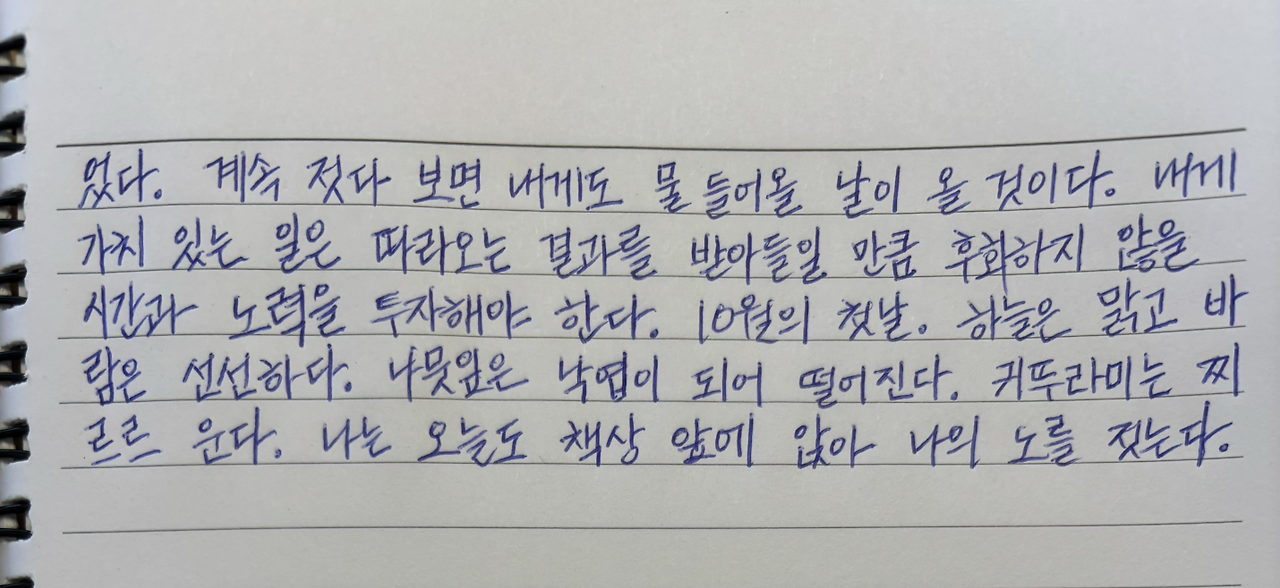 었다. 계속 젓다 보면 내게도 물 들어올 날이 올 것이다. 내게
가치 있는 일은 따라오는 결과를 받아들일 만큼 후회하지 않을
시간과 노력을 투자해야 한다. 10월의 첫날. 하늘은 맑고 바
람은 선선하다. 나뭇잎은 낙엽이 되어 떨어진다. 귀뚜라미는 찌
르르 운다. 나는 오늘도 책상 앞에 앉아 나의 노를 젓는다.